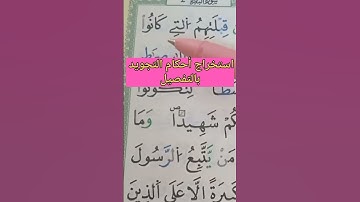 قِبْلَتِهِمُ الَّتِي كَانُوا
استخراج أحكام التجويد
بالتفصيل
لِتَكُونُوا
كُمْ شَهِيدًا ۗ وَمَا
مَنْ يَتَّبِعُ الرَّسُولَ
كَبِيرَةً إِلَّا عَلَى الَّذِينَ